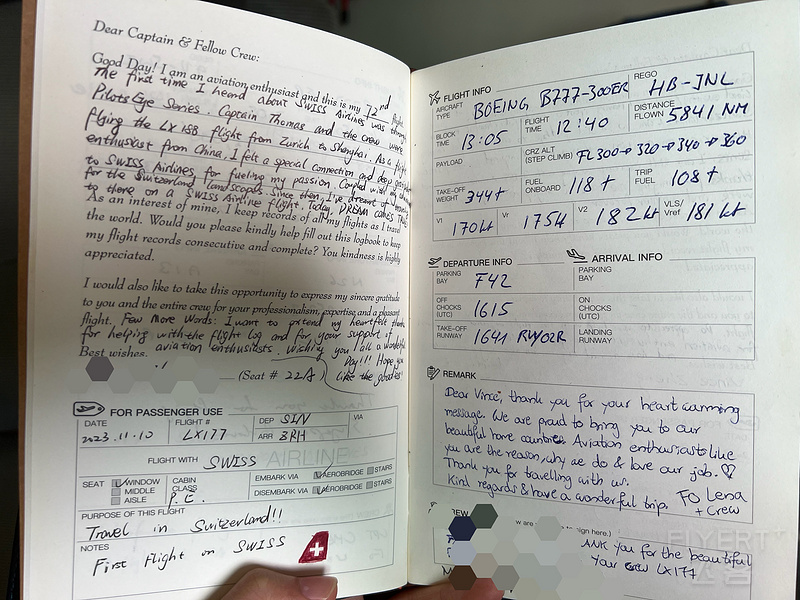 Dear Captain & Fellow Crew:
Good Day! I am an aviation enthusiast and this is my 72nd flight
The first time I heard about SWISS Airlines was through
Pilots Eye Series. Captain Thomas and the Crew were
flying the LX188 flight from Zurich to Shanghai. As a flight
enthusiast from China, I felt a special connection and deep gratitude
to SWISS Airlines, for fueling my passion. Coupled with
for the Switzerland landscapes since then, I've dreamt of
to there on a SWISS Airline flight. Today, DREAM COMES TRUE
As an interest of mine, I keep records of all my flights as I travel
the world. Would you please kindly help fill out this logbook to keep
my flight records consecutive and complete? You kindness is highly
appreciated.
I would also like to take this opportunity to express my sincere gratitude
to you and the entire crew for your professionalism, expertise and a pleasant
flight. Few More Words: I want to extend my heartfelt thanks
for helping with the flight log and for your support of
Best wishes. aviation enthusiasts. Wishing you all a wonderful
Day!!! Hope you
(Seat # 22A) like the goodies!
FOR PASSENGER USE
DATE 2023.11.10 FLIGHT # LX177 DEP SIN VIA
ARR ZRH
FLIGHT WITH SWISS AIRLINE
SEAT WINDOW MIDDLE AISLE
CABIN CLASS P.E.
EMBARK VIA AEROBRIDGE STAIRS
DISEMBARK VIA AEROBRIDGE STAIRS
PURPOSE OF THIS FLIGHT
Travel in Switzerland!!
NOTES
First Flight on SWISS
FLIGHT INFO
AIRCRAFT TYPE BOEING B777-300ER REGO HB-JNL
BLOCK TIME 13:05 FLIGHT TIME 12:40 DISTANCE FLOWN 5841 NM
PAYLOAD CRZ ALT (STEP CLIMB) FL300→320→340→360
TAKE-OFF WEIGHT 344t FUEL ONBOARD 118t TRIP FUEL 108t
V1 170kt Vr 175k V2 182kt VLS/Vref 181kt
DEPARTURE INFO
PARKING BAY F42
OFF CHOCKS (UTC) 1615
TAKE-OFF RUNWAY 1641 RWY02R
ARRIVAL INFO
PARKING BAY
ON CHOCKS (UTC)
LANDING RUNWAY
REMARK
Dear Vince, thank you for your heart warming
message. We are proud to bring you to our
beautiful home countries. Aviation enthusiasts like
you are the reason, why we do & love our job. ♡
Thank you for travelling with us.
Kind regards & have a wonderful trip. FO Lena
+ Crew
to sign here.)
ANK you for the beautiful
Your crew LX177
FLYERT